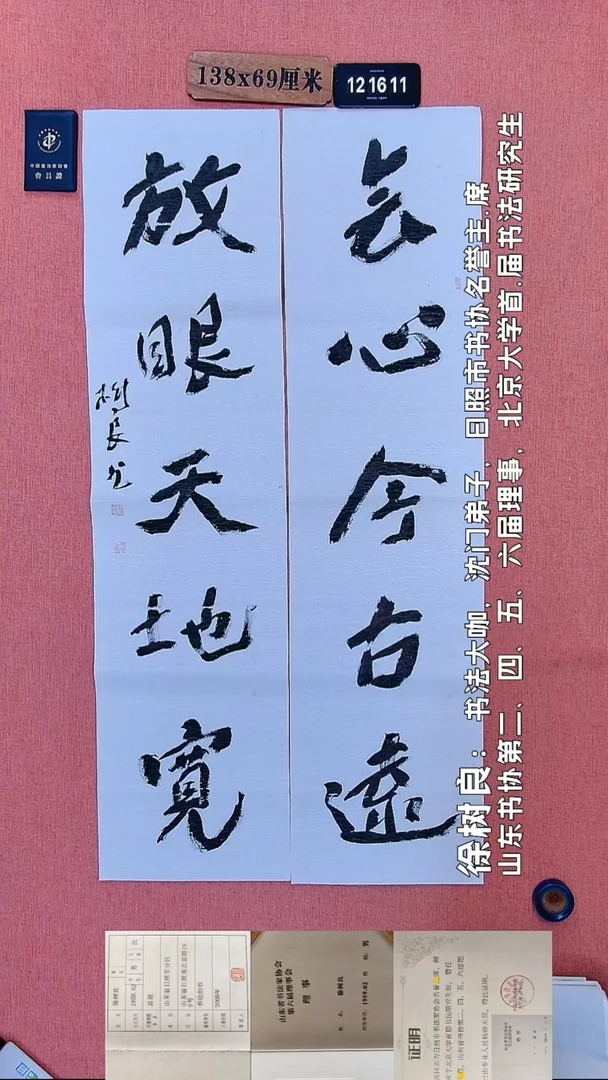 138x69厘米
121611
会心今古遠
放眼天地寬
樹良書
徐树良：书法大咖，沈门弟子，日照市书协名誉主.席
山东书协第二、四、五、六届理事，北京大学首.届书法研究生
徐树良
1959.02
男
汉
书法创作
2009年
山东省书法家协会
第六届理事会
理 事
徐树良
1959.02
男
证明